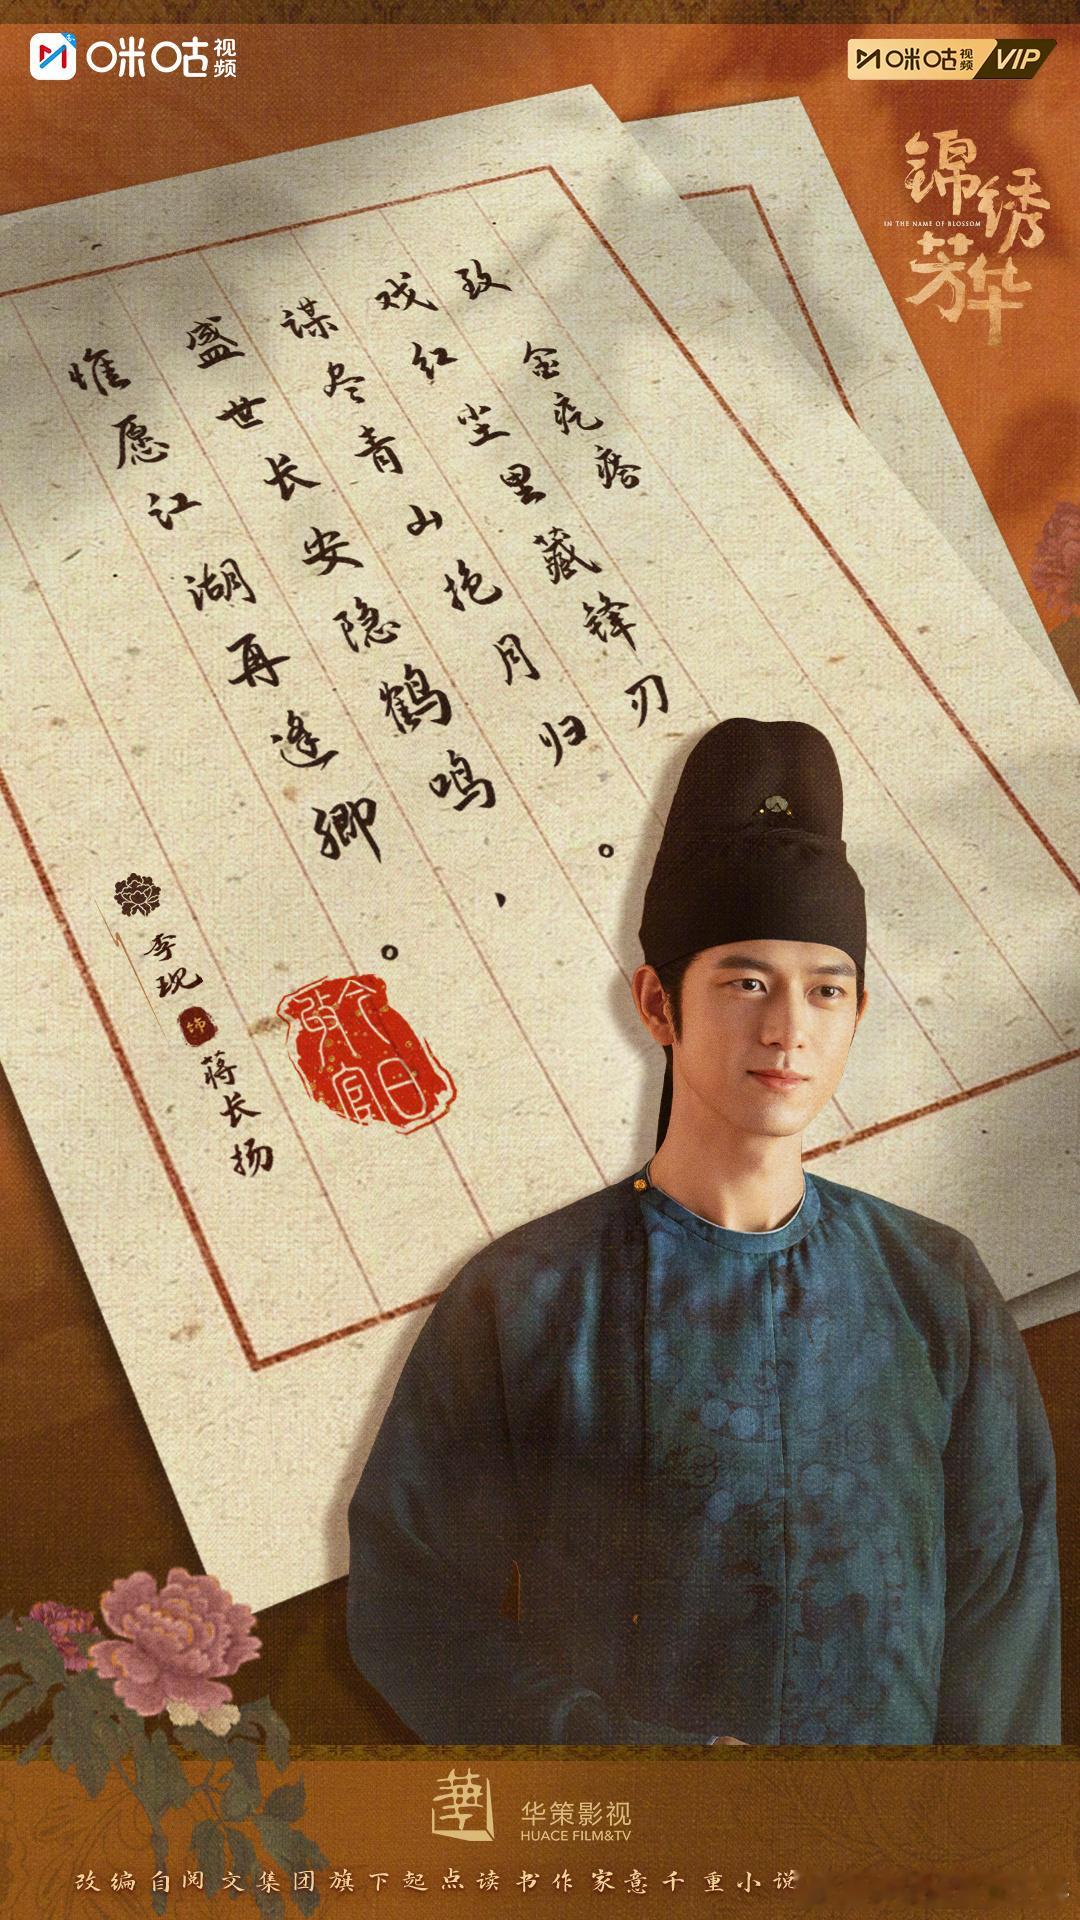 咪咕视频
咪咕视频 VIP
锦绣芳华
IN THE NAME OF BLOSSOM
致 金疙瘩
戏红尘里藏锋刃
谋尽青山抱月归。
盛世长安隐鹤鸣、
惟愿江湖再逢卿。
李现 饰 蒋长扬
今日
官
華
华策影视
HUACE FILM&TV
改编自阅文集团旗下起点读书作家意千重小说